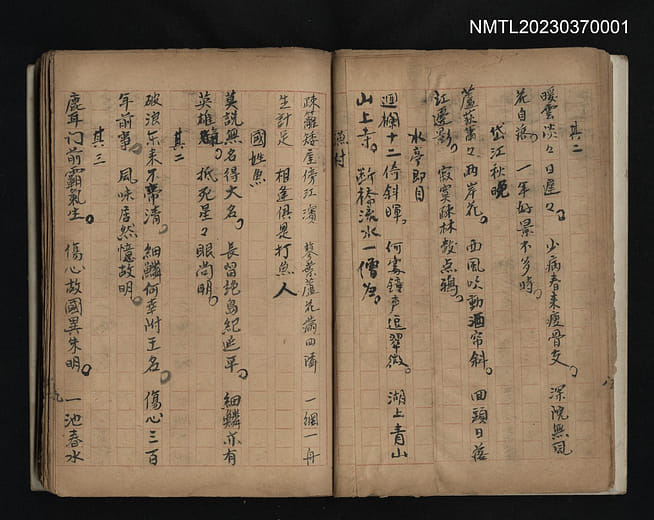 NMTL20230370001
其二
暖雲淡々日遲々。少病春来瘦骨支。深院無風
花自落。一年好景不多時。
岱江秋晚
蘆荻蕭々兩岸花。西風吹動酒帘斜。回頭日落
江邊影。寂寞疎林數点鴉。
水亭即目
迴欄十二倚斜暉。何處鐘声逗翠微。湖上青山
山上寺。断橋流水一僧歸。
漁村
疎籬矮屋傍江濱 蓼葉蘆花滿四隣 一網一舟
生計足 相逢俱是打魚人
國姓魚
莫説無名得大名。長留絕島紀延平。細鱗亦有
英雄。抵死星々眼尚明。
其二
破浪东来才帶清。細鱗何幸附王名。傷心三百
年前事。風味居然憶故明。
其三
鹿耳门前霸氣生。傷心故國異朱明。一池春水